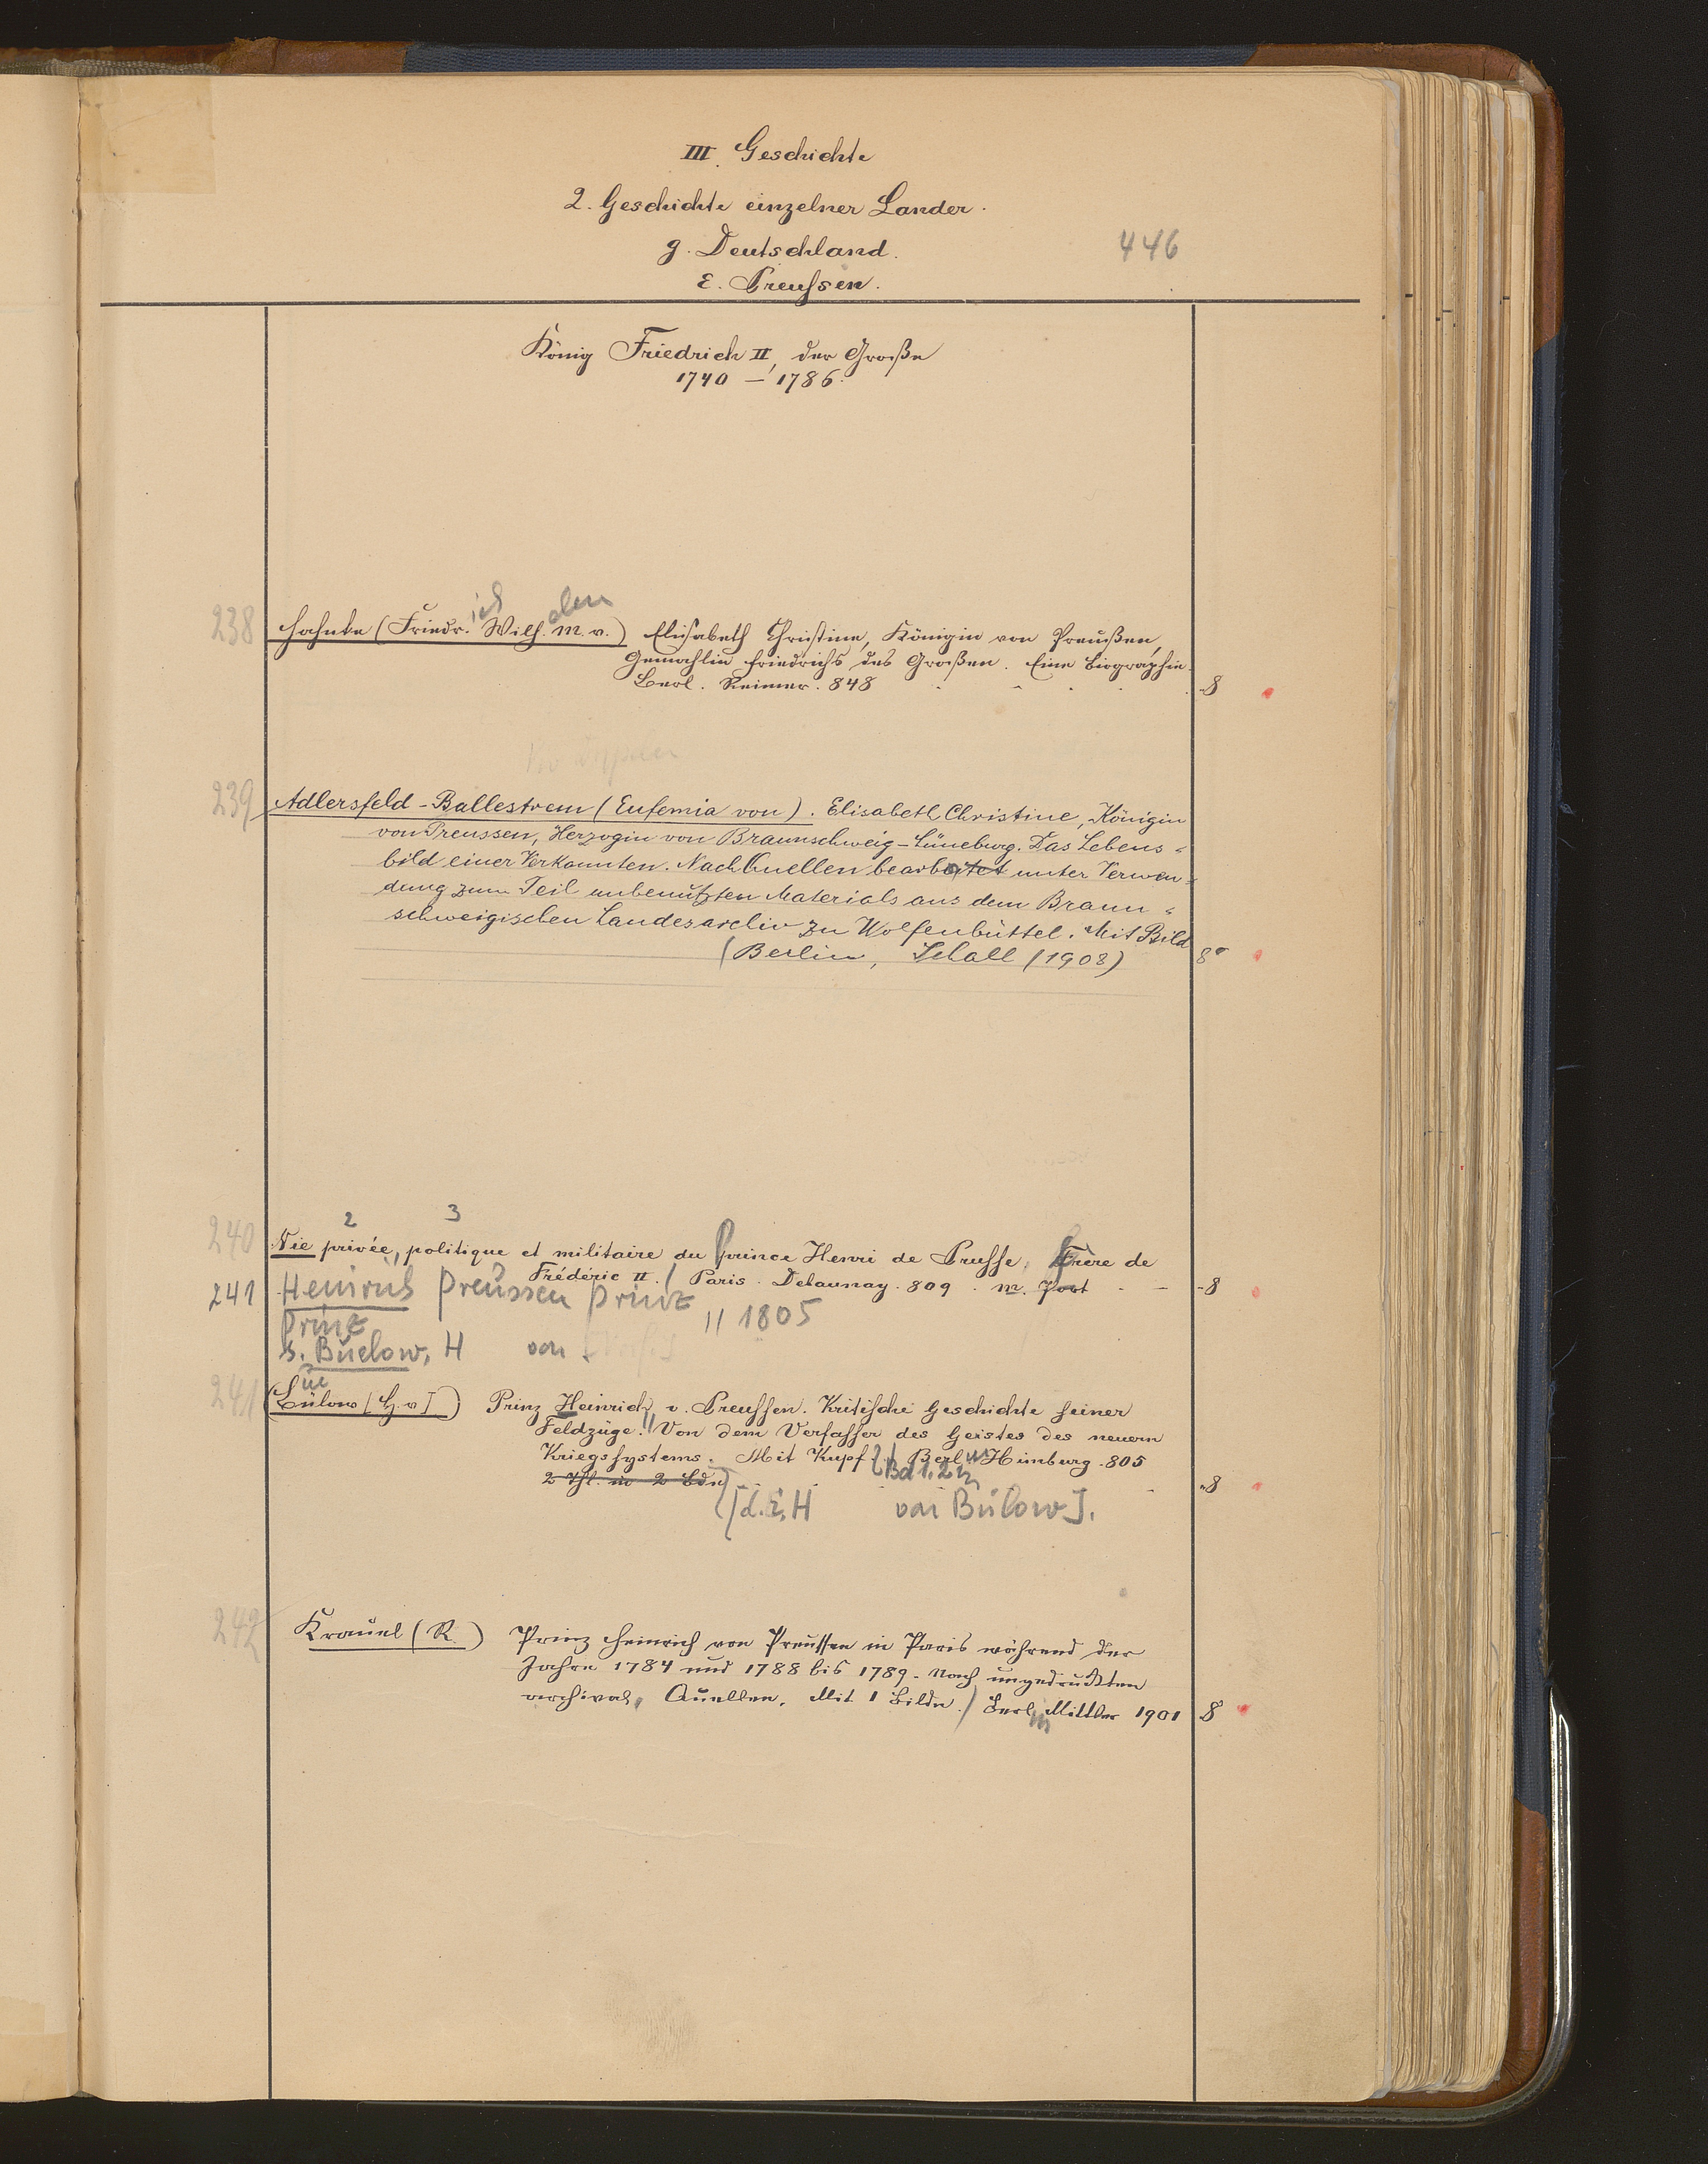 III. Geschichte
2. Geschichte einzelner Länder.
g. Deutschland.
446
ε. Preußen.
König Friedrich II, der Große
1740 – 1786.
ich
238 Hahnke (Friedr. Wilh. M. v.) Elisabeth Christine, Königin von Preußen,
Gemahlin Friedrichs des Großen. Eine Biographie.
Berl. Reimer. 848 8
239 Adlersfeld-Ballestrem (Eufemia von). Elisabeth Christine, Königin
von Preussen, Herzogin von Braunschweig-Lüneburg. Das Lebens-
bild einer Verkannten. Nach Quellen bearbeitet unter Verwen-
dung zum Teil unbenutzten Materials aus dem Braun-
schweigischen Landesarchiv zu Wolfenbüttel. Mit Bild
(Berlin, Schall (1908) 8°
2 3
240 Vie privée, politique et militaire du prince Henri de Prusse, frère de
Frédéric II. / Paris. Delaunay. 809. m. Port 8
241 Heinrich Preussen Prinz
Prinz // 1805
s. Buelow, H von
ue
241 (Bülow [H. v]) Prinz Heinrich v. Preussen. Kritische Geschichte seiner
Feldzüge. // Von dem Verfasser des Geistes des neuern
Kriegssystems. Mit Kupf. Berl. Himburg. 805
Bd 1. 2
2 Thl. in 2 Bdn 8
[d. i. H von Bülow].
242 Krauel (R.) Prinz Heinrich von Preussen in Paris während der
Jahre 1784 und 1788 bis 1789. Nach ungedruckten
archival. Quellen. Mit 1 Bilde. / Berl. Mittler 1901 8
in